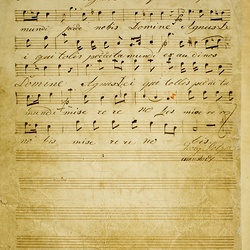 mundi parce nobis Domine Agnus De
i qui tollis peccata mundi exaudi nos
Domine Agnus Dei qui tollis pecca ta
mundi mise re re no bis mise re re
no bis mise re re no bis